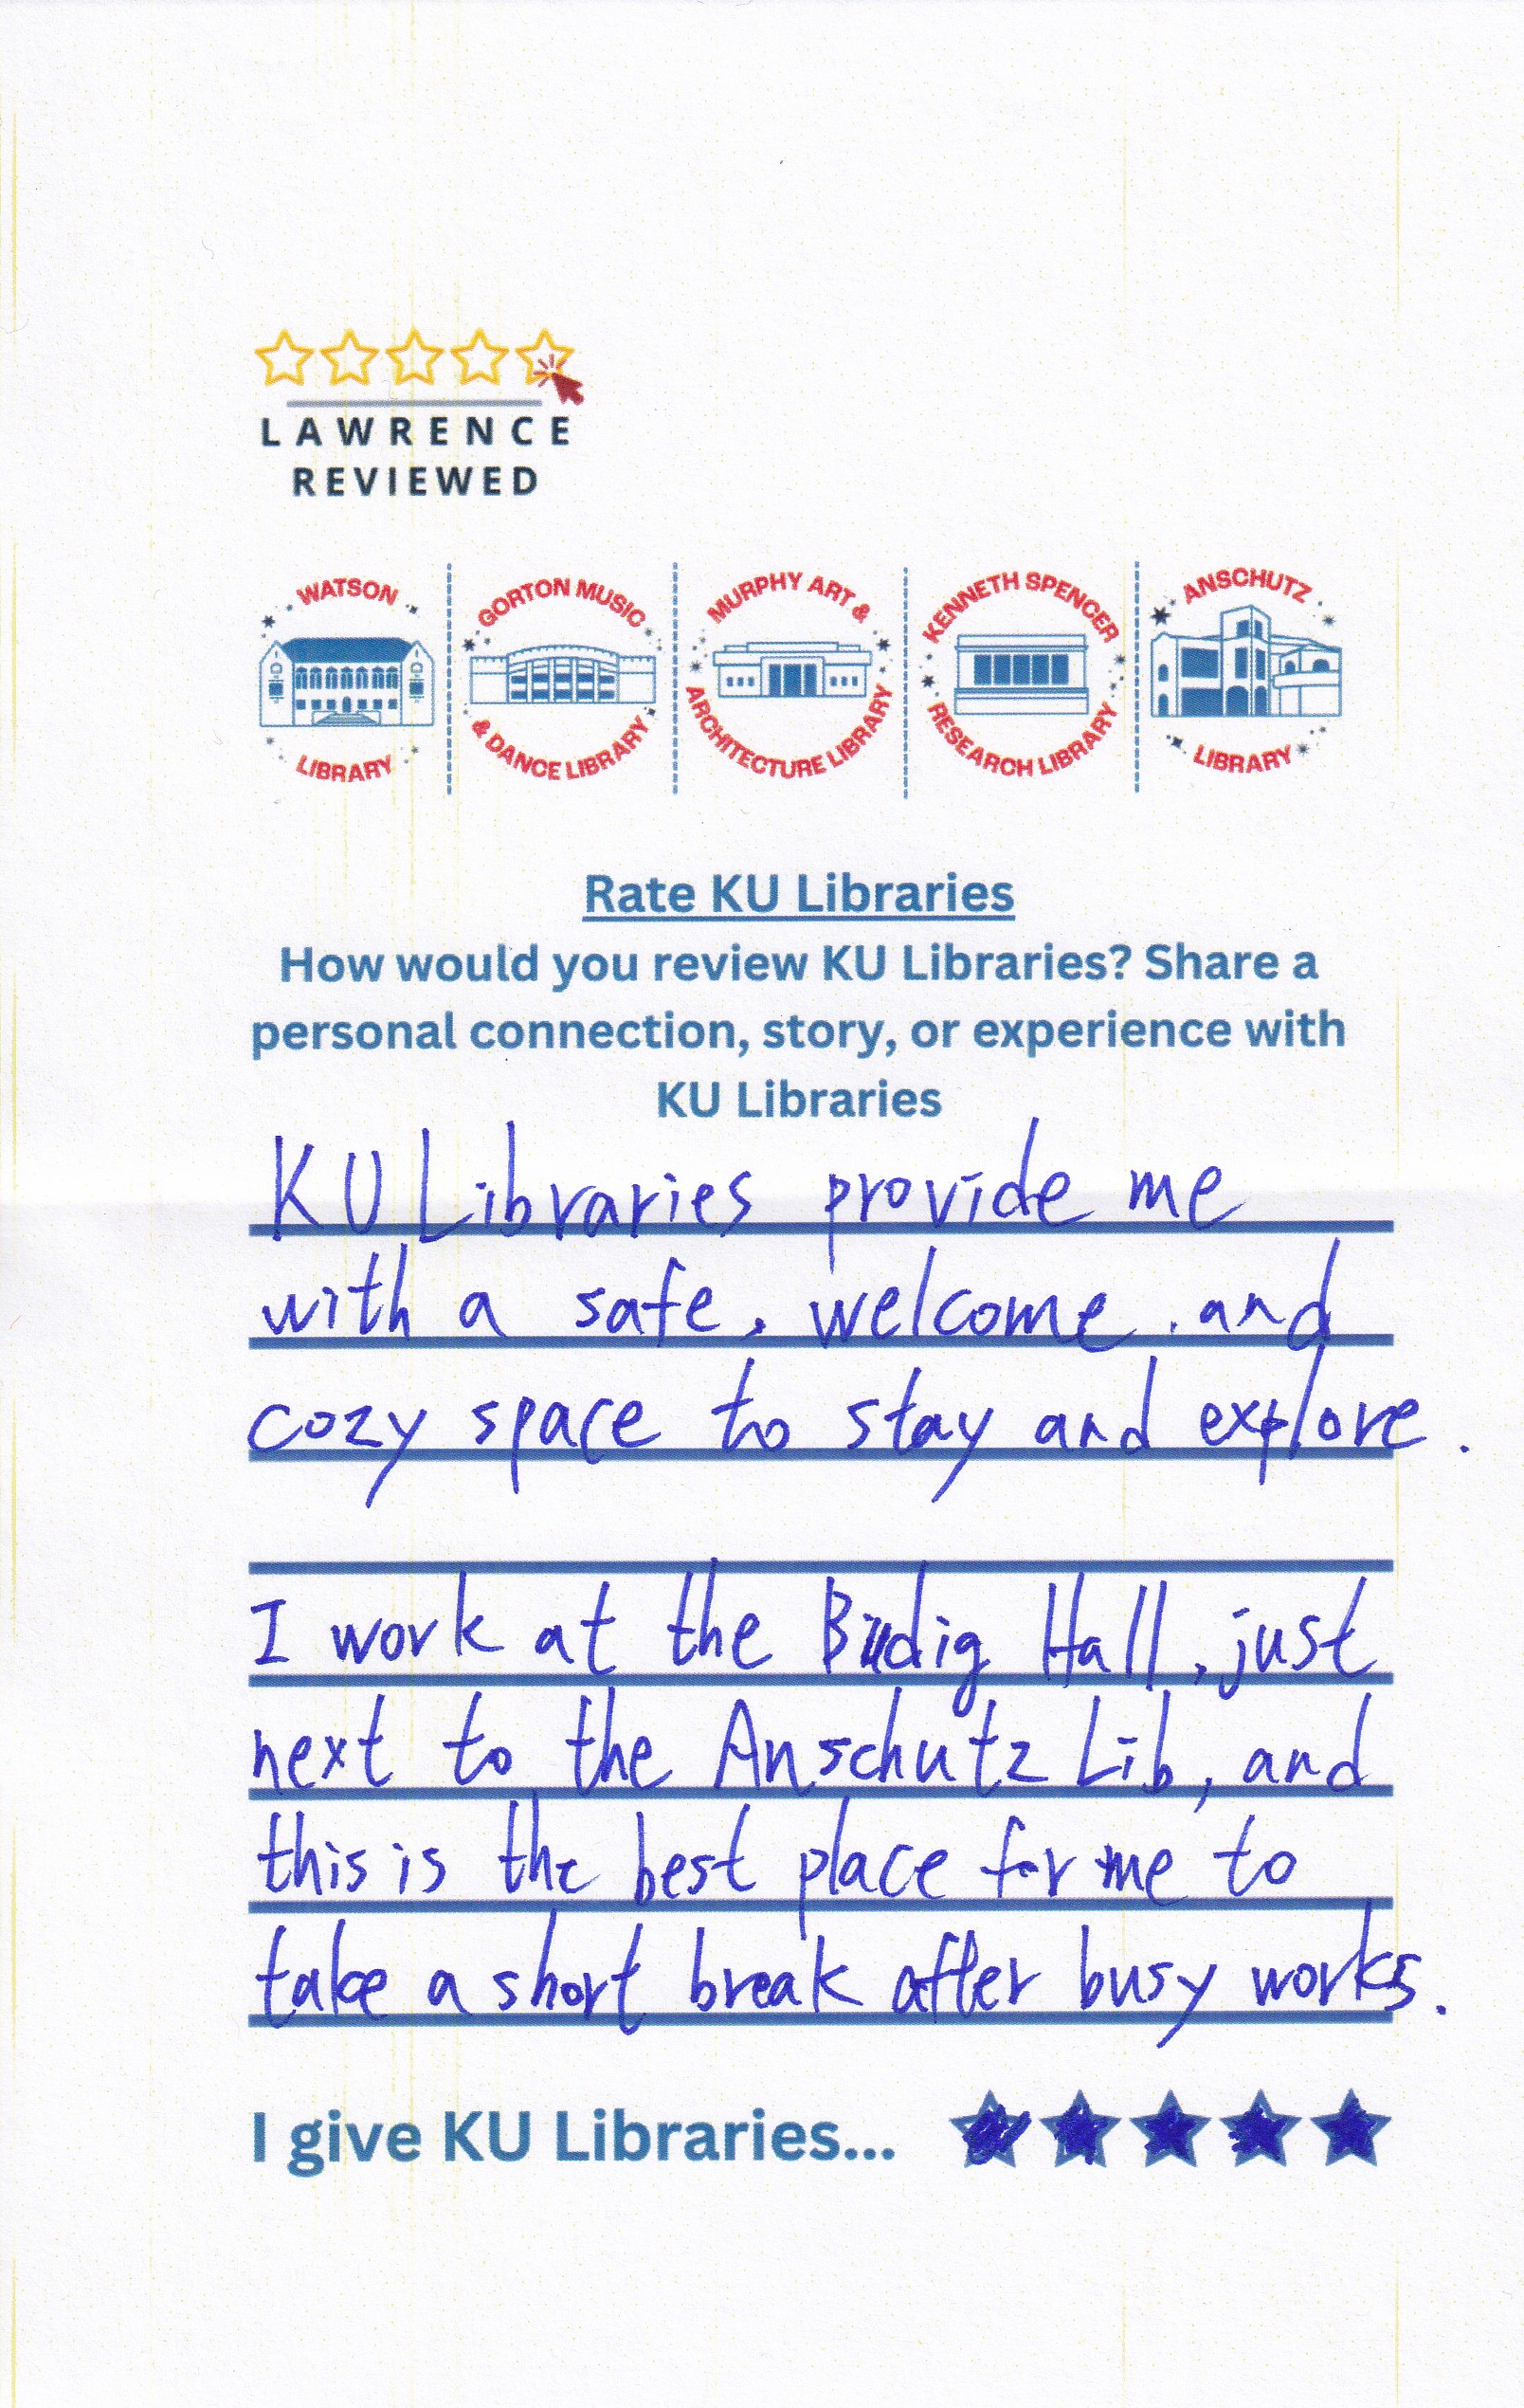 LAWRENCE
REVIEWED
WATSON LIBRARY
GORTON MUSIC & DANCE LIBRARY
MURPHY ART & ARCHITECTURE LIBRARY
KENNETH SPENCER RESEARCH LIBRARY
ANSCHUTZ LIBRARY
Rate KU Libraries
How would you review KU Libraries? Share a
personal connection, story, or experience with
KU Libraries
KU Libraries provide me
with a safe, welcome, and
cozy space to stay and explore.
I work at the Budig Hall, just
next to the Anschutz Lib, and
this is the best place for me to
take a short break after busy works.
I give KU Libraries...